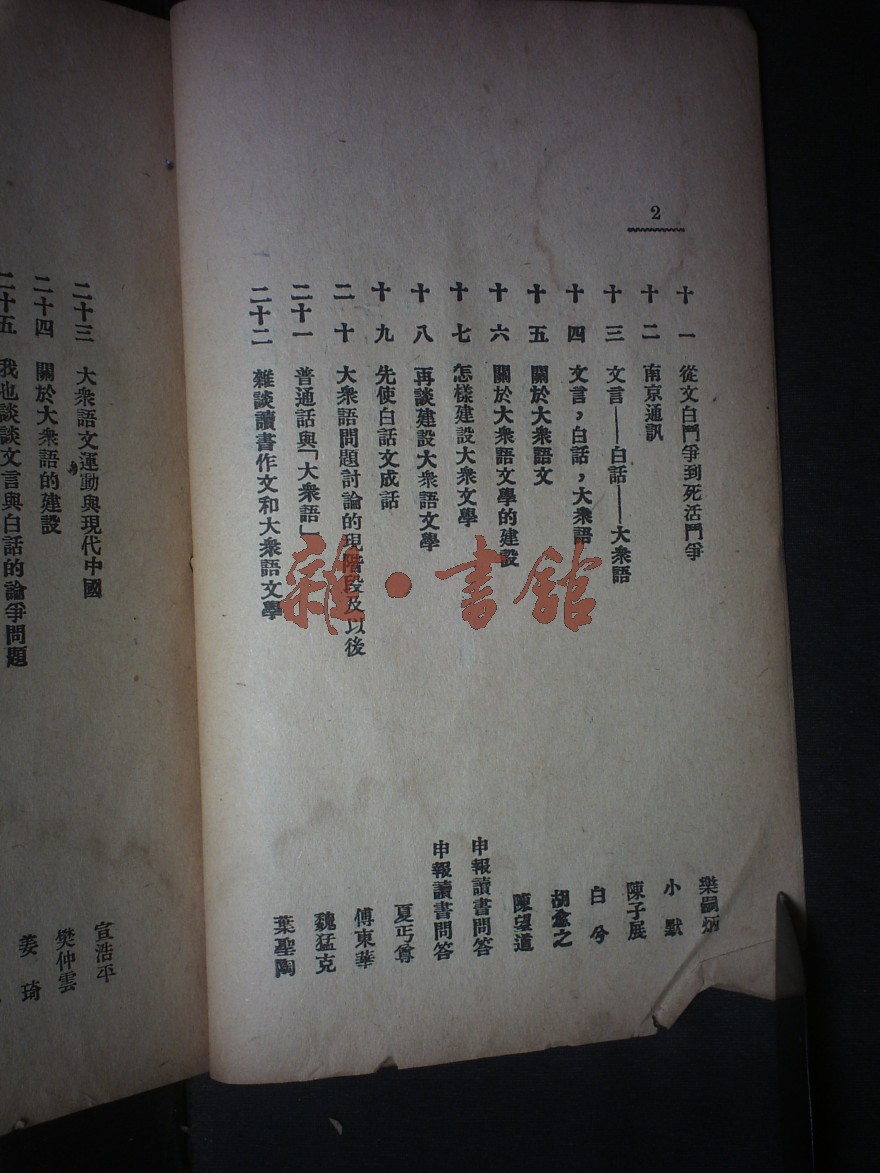 2
十一 從文白鬥爭到死活鬥爭 樂嗣炳
十二 南京通訊 小默
十三 文言——白話——大衆語 陳子展
十四 文言，白話，大衆語 白兮
十五 關於大衆語文 胡愈之
十六 關於大衆語文學的建設 陳望道
十七 怎樣建設大衆文學 申報讀書問答
十八 再談建設大衆語文學 申報讀書問答
十九 先使白話文成話 夏丏尊
二十 大衆語問題討論的現階段及以後 傅東華
二十一 普通話與「大衆語」 魏猛克
二十二 雜談讀書作文和大衆語文學 葉聖陶
二十三 大衆語文運動與現代中國 宣浩平
二十四 關於大衆語的建設 樊仲雲
二十五 我也談談文言與白話的論爭問題 姜琦
雜·書館